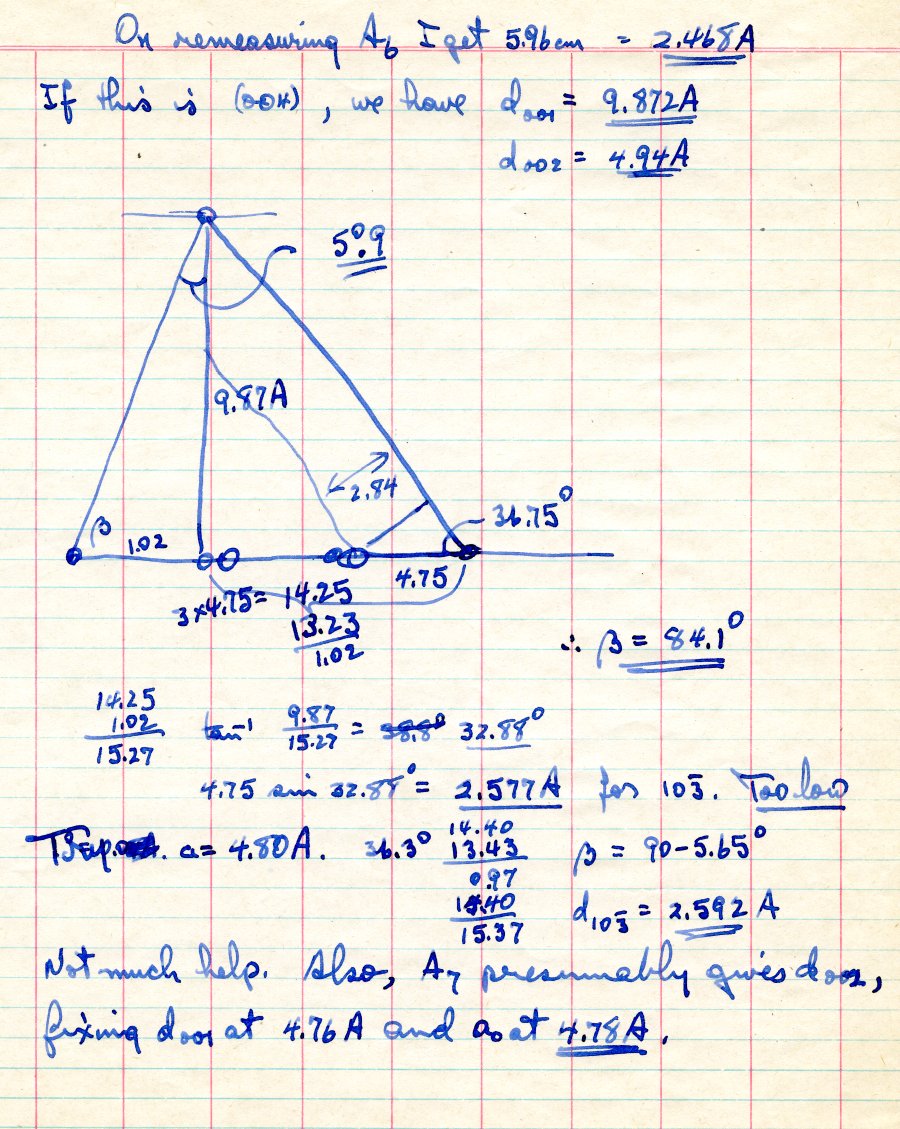 On remeasuring A₆ I get 5.96cm = 2.468A
If this is (004), we have d₀₀₁ = 9.872A
d₀₀₂ = 4.94A
5°.9
9.87A
2.84
36.75°
β
1.02
4.75
3×4.75= 14.25
13.23
1.02
∴ β = 84.1°
14.25
1.02
15.27
tan⁻¹ 9.87/15.27 = 38.8° 32.88°
4.75 sin 32.88° = 2.577A for 103̄. Too low
a = 4.80A. 36.3° 14.40 β = 90-5.65°
13.43
0.97
14.40 d₁₀₃̄ = 2.592 A
15.37
Not much help. Also, A₇ presumably gives d₀₀₂,
fixing d₀₀₁ at 4.76A and a₀ at 4.78A.